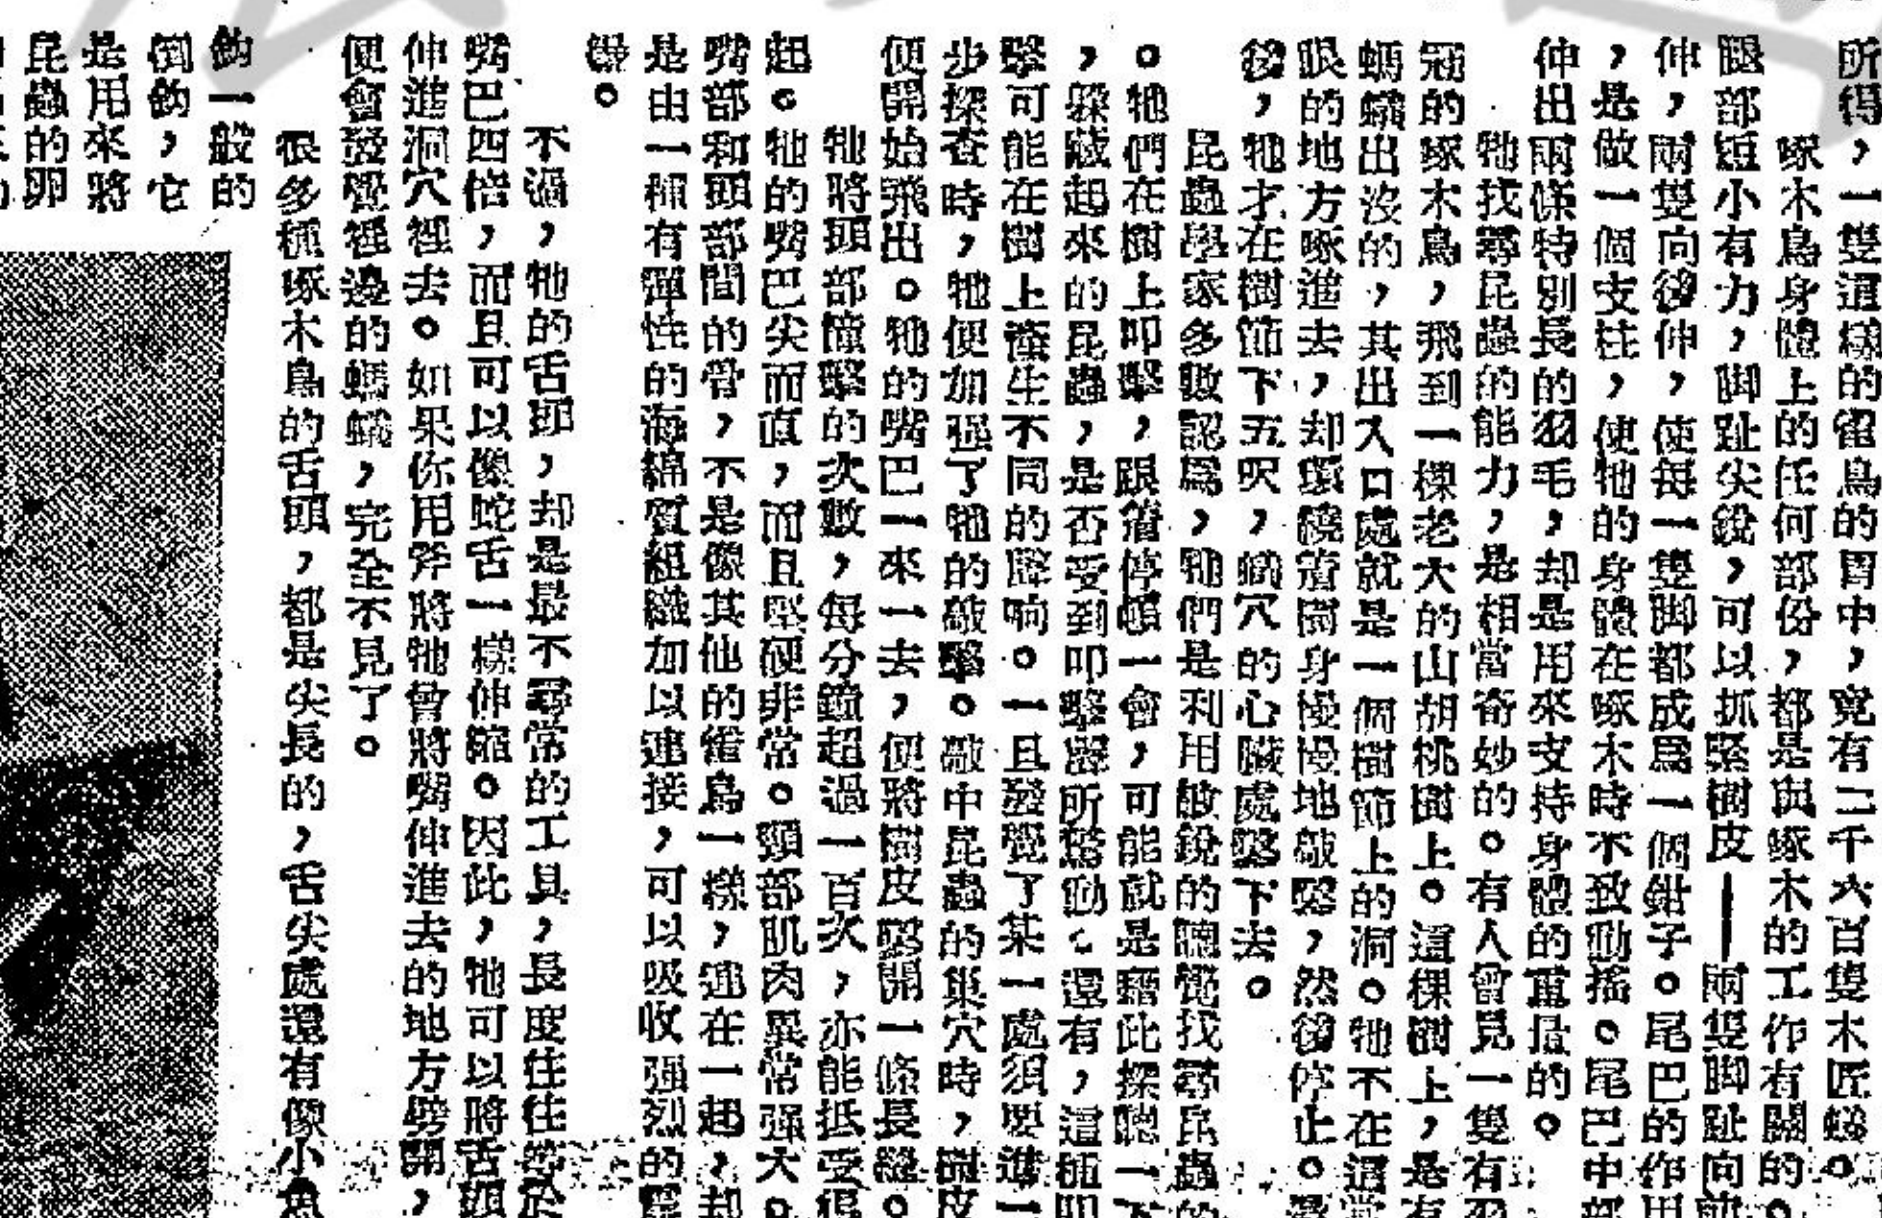 所得，一隻這樣的雀鳥的胃中，竟有二千六百隻木匠蟻。
啄木鳥身體上的任何部份，都是與啄木的工作有關的。
腿部短小有力，脚趾尖銳，可以抓緊樹皮——兩隻脚趾向前
伸，兩隻向後伸，使每一隻脚都成爲一個鉗子。尾巴的作用
，是做一個支柱，使牠的身體在啄木時不致動搖。尾巴中部
伸出兩條特別長的羽毛，却是用來支持身體的重量的。
牠找尋昆蟲的能力，是相當奇妙的。有人曾見一隻有羽
冠的啄木鳥，飛到一棵老大的山胡桃樹上。這棵樹上，是有
螞蟻出沒的，其出入口處就是一個樹節上的洞。牠不在這當
眼的地方啄進去，却環繞着樹身慢慢地敲擊，然後停止。
後，牠才在樹節下五呎，蟻穴的心臟處鑿下去。
昆蟲學家多數認爲，牠們是利用敏銳的聽覺找尋昆蟲的
。牠們在樹上叩擊，跟着停頓一會，可能就是藉此探聽一下
，躱藏起來的昆蟲，是否受到叩擊聲所驚動。還有，這種叩
擊可能在樹上產生不同的聲响。一旦發覺了某一處須要進一
步探查時，牠便加强了牠的敲擊。敲中昆蟲的巢穴時，樹皮
便開始飛出。牠的嘴巴一來一去，便將樹皮鑿開一條長縫。
牠將頭部撞擊的次數，每分鐘超過一百次，亦能抵受得
起。牠的嘴巴尖而直，而且堅硬非常。頸部肌肉異常强大。
嘴部和頭部間的骨，不是像其他的雀鳥一樣，連在一起，却
是由一種有彈性的海綿質組織加以連接，可以吸收强烈的震
。
不過，牠的舌頭，却是最不尋常的工具，長度往往等於
嘴巴四倍，而且可以像蛇舌一樣伸縮。因此，牠可以將舌頭
伸進洞穴裡去。如果你用斧將牠曾將嘴伸進去的地方劈開，
便會發覺裡邊的螞蟻，完全不見了。
很多種啄木鳥的舌頭，都是尖長的，舌尖處還有像小魚
鈎一般的
倒鈎，它
是用來將
昆蟲的卵